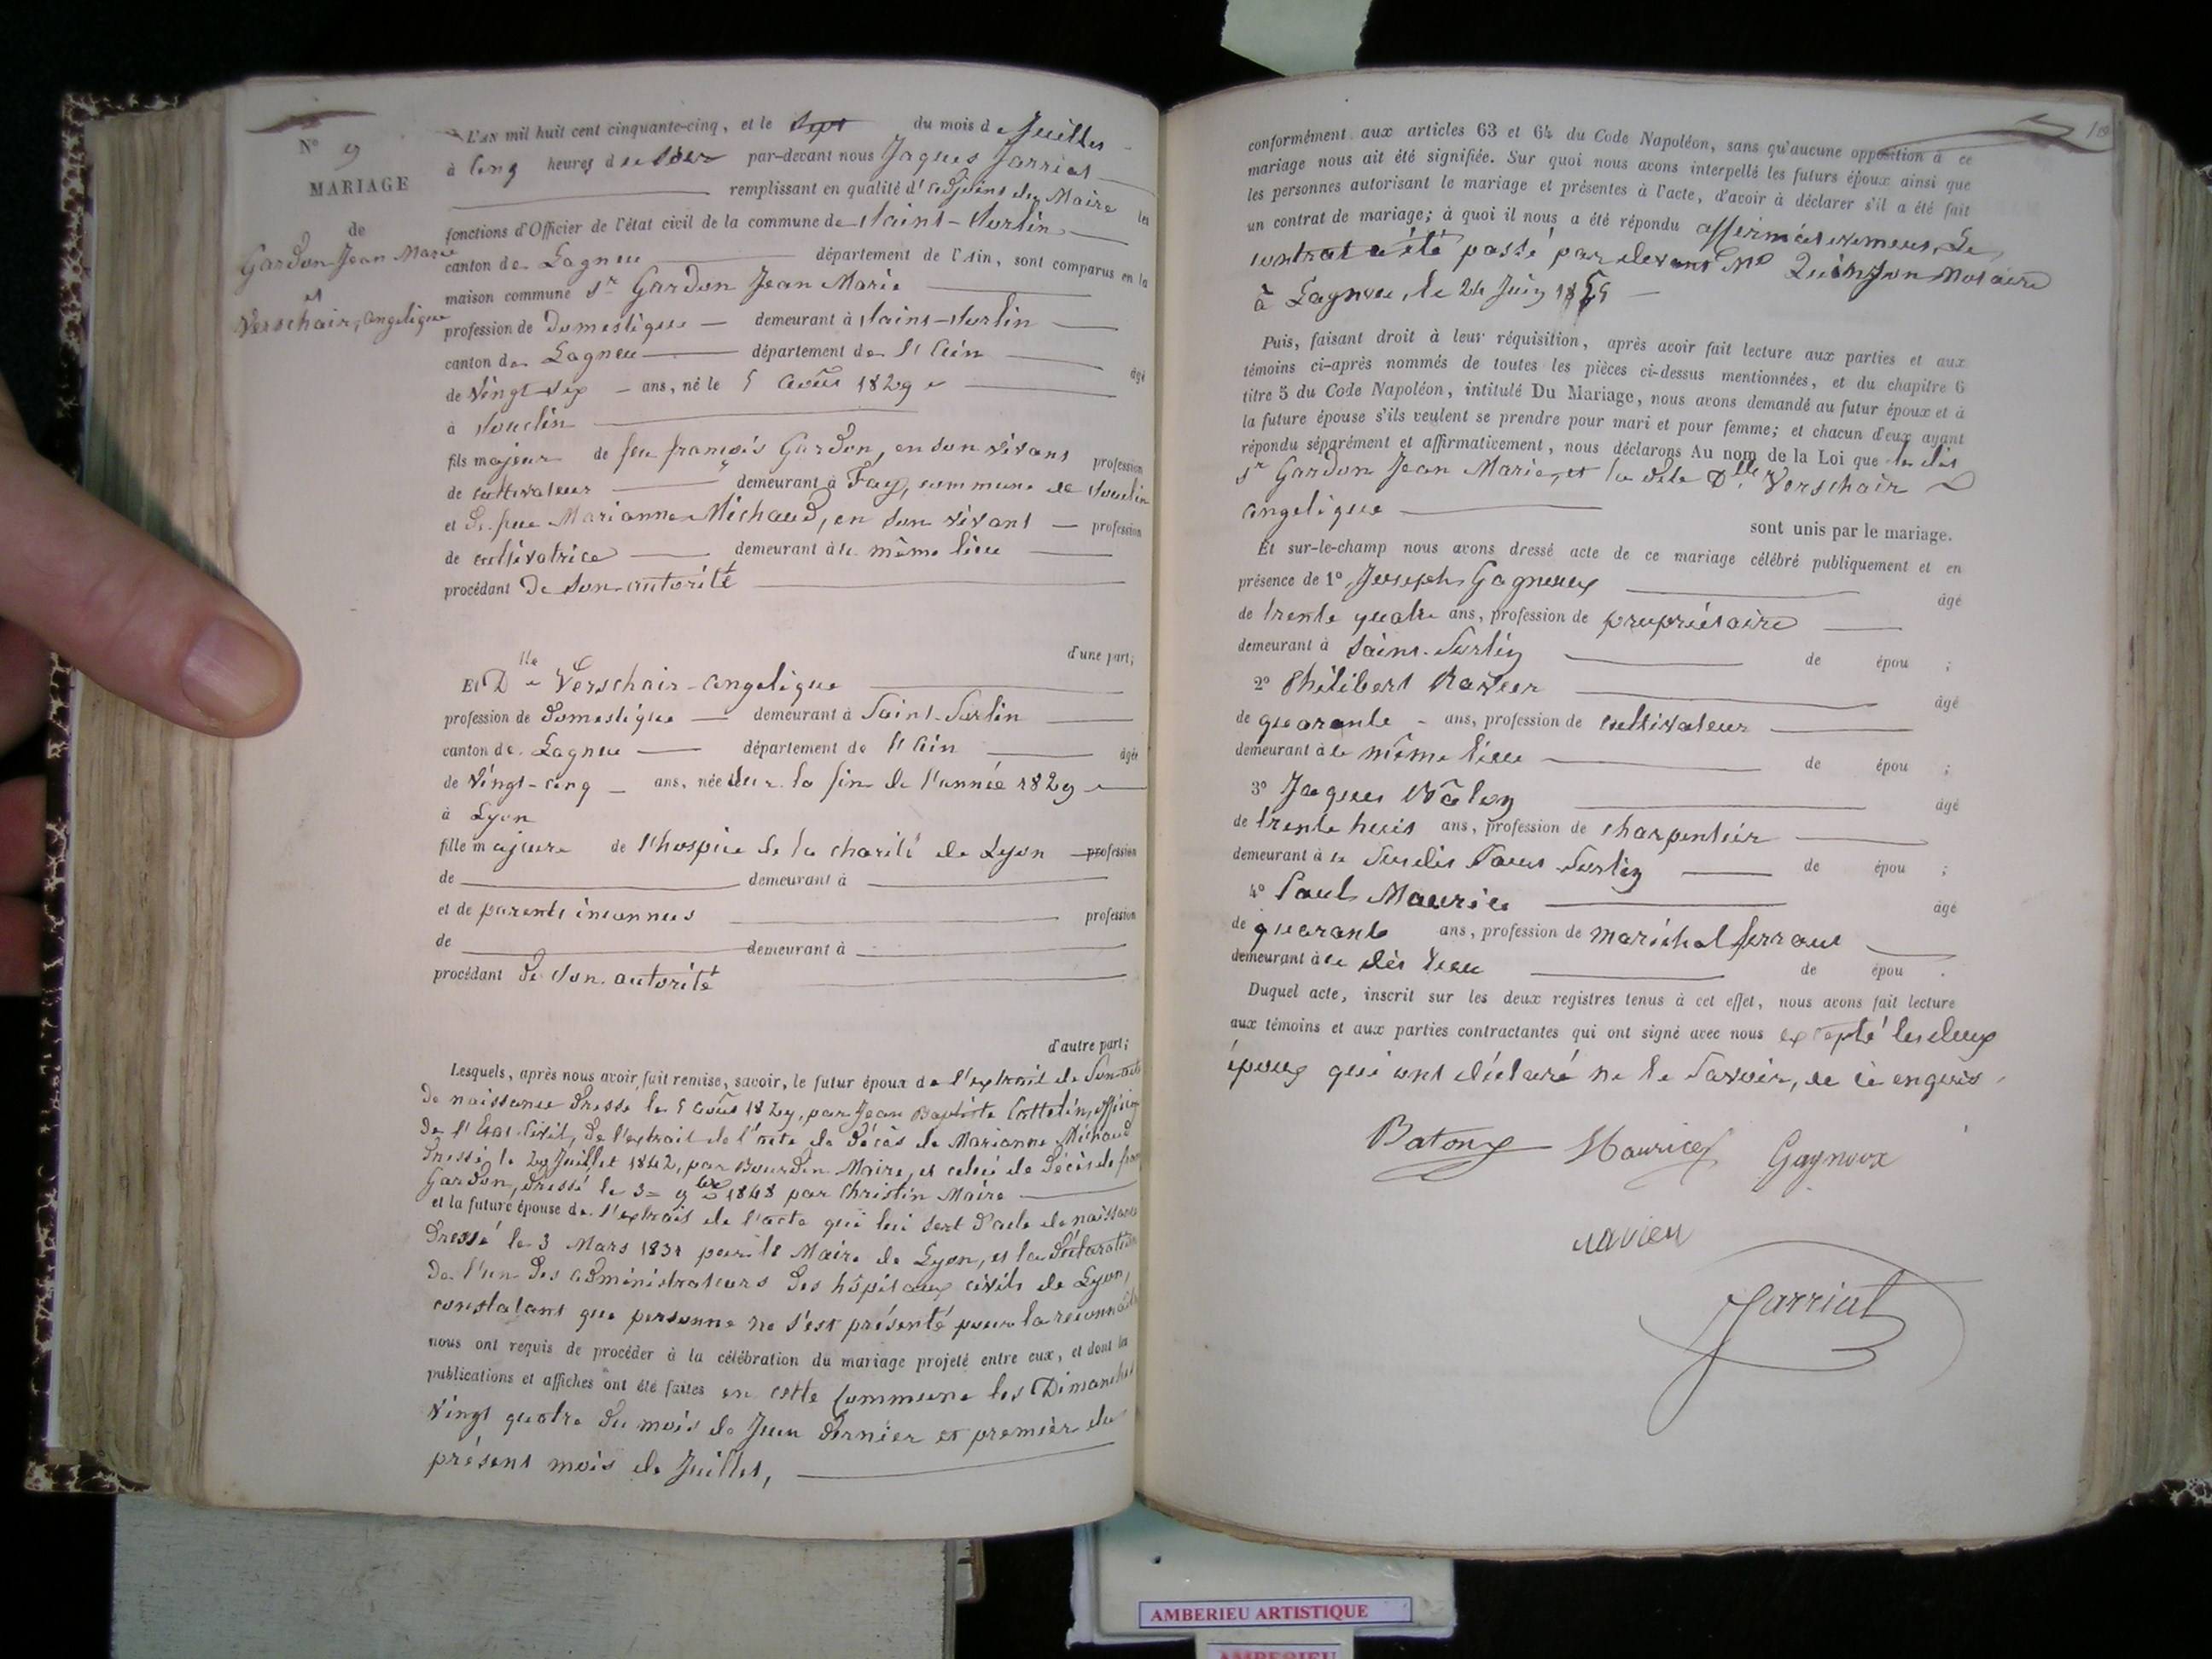 N° 9
MARIAGE
de
Gardon Jean Marie
et
Verschair, angelique
L'AN mil huit cent cinquante-cinq, et le sept du mois de Juillet
à cinq heures du soir par-devant nous Jaques Jarriat
remplissant en qualité d'adjoint du Maire les
fonctions d'Officier de l'état civil de la commune de Saint-Sorlin
canton de Lagneu département de l'Ain, sont comparus en la
maison commune Sr Gardon Jean Marie
profession de Domestique demeurant à Saint-Sorlin
canton de Lagneu département de l'Ain âgé
de Vingt six ans, né le 5 août 1829
à Souclin
fils majeur de feu françois Gardon, en son vivant profession
de cultivateur demeurant à Fay, commune de Souclin
et de feue Marianne Michaud, en son vivant profession
de cultivatrice demeurant à le même lieu
procédant De son autorité
d'une part;
Et Dlle Verschair angelique
profession de domestique demeurant à Saint-Sorlin
canton de Lagneu département de l'Ain âgée
de Vingt-cinq ans, née sur la fin de l'année 1829
à Lyon
fille majeure de l'hospice de la charité de Lyon profession
de demeurant à
et de parents inconnus profession
de demeurant à
procédant de son autorité
d'autre part;
Lesquels, après nous avoir fait remise, savoir, le futur époux de l'extrait de son acte
de naissance dressé le 5 août 1829, par Jean Baptiste Cottelin, officier
de l'Etat Civil, de l'extrait de l'acte de décès de Marianne Michaud
dressé le 29 Juillet 1842, par Bourdin Maire, et celui de décès de fran
Gardon, dressé le 3 9bre 1848 par Christin Maire
et la future épouse de l'extrait de l'acte qui lui sert d'acte de naissance
dressé le 3 Mars 1831 par le Maire de Lyon, et la déclaration
de l'un des administrateurs des hôpitaux civils de Lyon,
constatant que personne ne s'est présenté pour la reconnaitre
nous ont requis de procéder à la célébration du mariage projeté entre eux, et dont les
publications et affiches ont été faites en cette commune les Dimanches
Vingt quatre du mois de Juin dernier et premier du
présent mois de Juillet,
conformément aux articles 63 et 64 du Code Napoléon, sans qu'aucune opposition à ce
mariage nous ait été signifiée. Sur quoi nous avons interpellé les futurs époux ainsi que
les personnes autorisant le mariage et présentes à l'acte, d'avoir à déclarer s'il a été fait
un contrat de mariage; à quoi il nous a été répondu affirmativement, Le
contrat a été passé par devant Me Quinson Notaire
à Lagneu, le 24 Juin 1855
Puis, faisant droit à leur réquisition, après avoir fait lecture aux parties et aux
témoins ci-après nommés de toutes les pièces ci-dessus mentionnées, et du chapitre 6
titre 5 du Code Napoléon, intitulé Du Mariage, nous avons demandé au futur époux et à
la future épouse s'ils veulent se prendre pour mari et pour femme; et chacun d'eux ayant
répondu séparément et affirmativement, nous déclarons Au nom de la Loi que le dit
Sr Gardon Jean Marie, et la dite Dlle Verschair
angelique
sont unis par le mariage.
Et sur-le-champ nous avons dressé acte de ce mariage célébré publiquement et en
présence de 1° Joseph Gagneux âgé
de trente quatre ans, profession de propriétaire
demeurant à Saint-Sorlin de épou ;
2° Philibert Ravier âgé
de quarante ans, profession de cultivateur
demeurant à le même lieu de épou ;
3° Jaques Baton âgé
de trente huit ans, profession de charpentier
demeurant à Sorlin de épou ;
4° Paul Maurice âgé
de quarante ans, profession de maréchal ferrant
demeurant à le dit lieu de épou .
Duquel acte, inscrit sur les deux registres tenus à cet effet, nous avons fait lecture
aux témoins et aux parties contractantes qui ont signé avec nous excepté les deux
époux qui ont déclaré ne le savoir, de ce enquis.
Baton Maurice Gagneux
ravier
Jarriat
AMBERIEU ARTISTIQUE
AMBERIEU